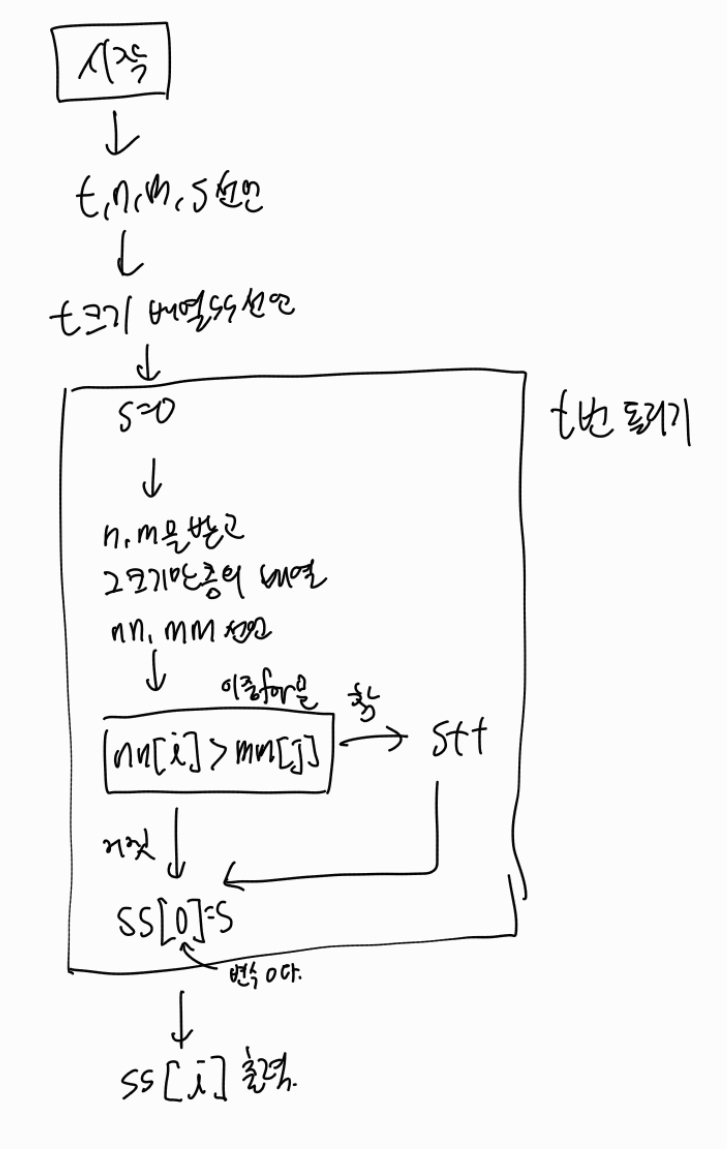 시작
t, n, m, s 선언
t크기 배열 ss 선언
t번 돌리기
s=0
n, m을 받고
그 크기만큼의 배열
nn, mm 선언
이중for문
nn[i] > mm[j]
참
s++
거짓
ss[o]=s
변수 o다.
ss[i] 출력.